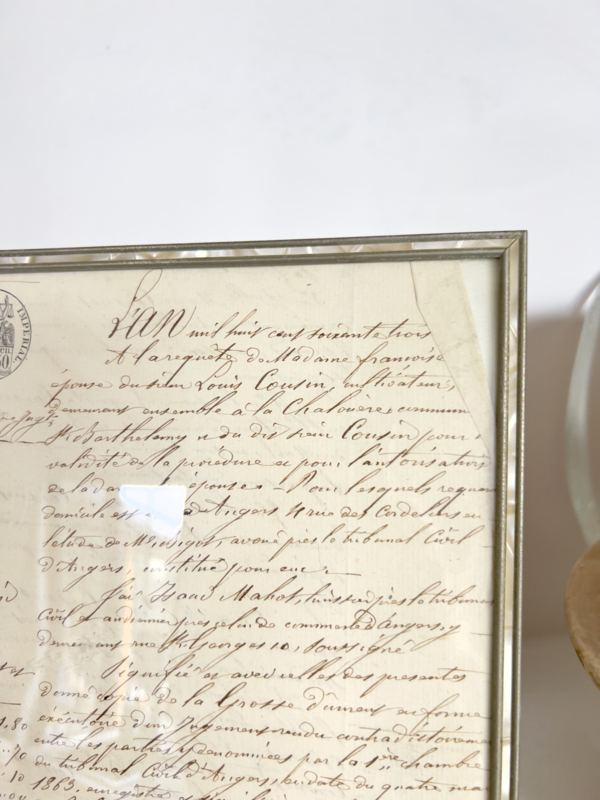 IMPERIAL
50
L'AN mil huit cent soixante trois
A la requête de Madame françoise
épouse du sieur Louis Cousin, cultivateur,
demeurant ensemble à la Chalouère commune
St Barthelemy et du dit sieur Cousin pour
validité de la procédure et pour l'autorisation
de la da épouse - Pour lesquels
domicile est d'Angers rue des Cordeliers
l'étude de Me avoué près le tribunal Civil
d'Angers, constitué pour eux.
J'ai Isaac Mahot, huissier près le tribunal
Civil et audiencier près celui de commerce d'Angers, y
demeurant rue St Georges 10, soussigné
Signifié et avec celles des présentes
donné copie de la Grosse dûment en forme
exécutoire d'un Jugement rendu contradictoirement
entre les parties y dénommées par la 1ère chambre
du tribunal Civil d'Angers, en date du quatre
1863, enregistré